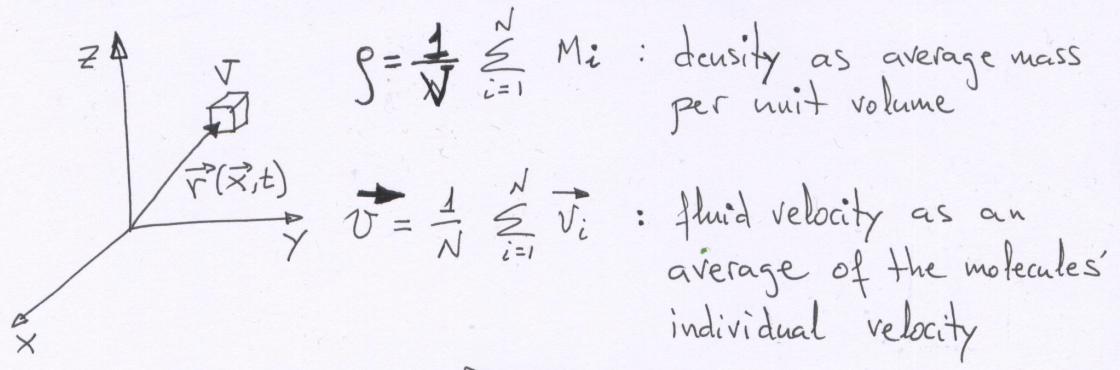 Z
V
r⃗(x⃗,t)
Y
X
ρ = 1/V ∑_{i=1}^{N} Mi : density as average mass
per unit volume
v⃗ = 1/N ∑_{i=1}^{N} v⃗i : fluid velocity as an
average of the molecules'
individual velocity